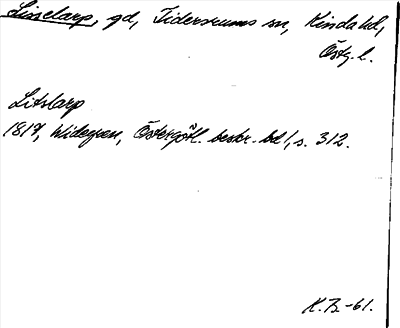 Linnetorp, gd, Tidersrums sn, Kinda hd,
Östg. l.
Litstarp
1817, Widegren, Östergötl. beskr. bd 1, s. 312.
K.B.-61.